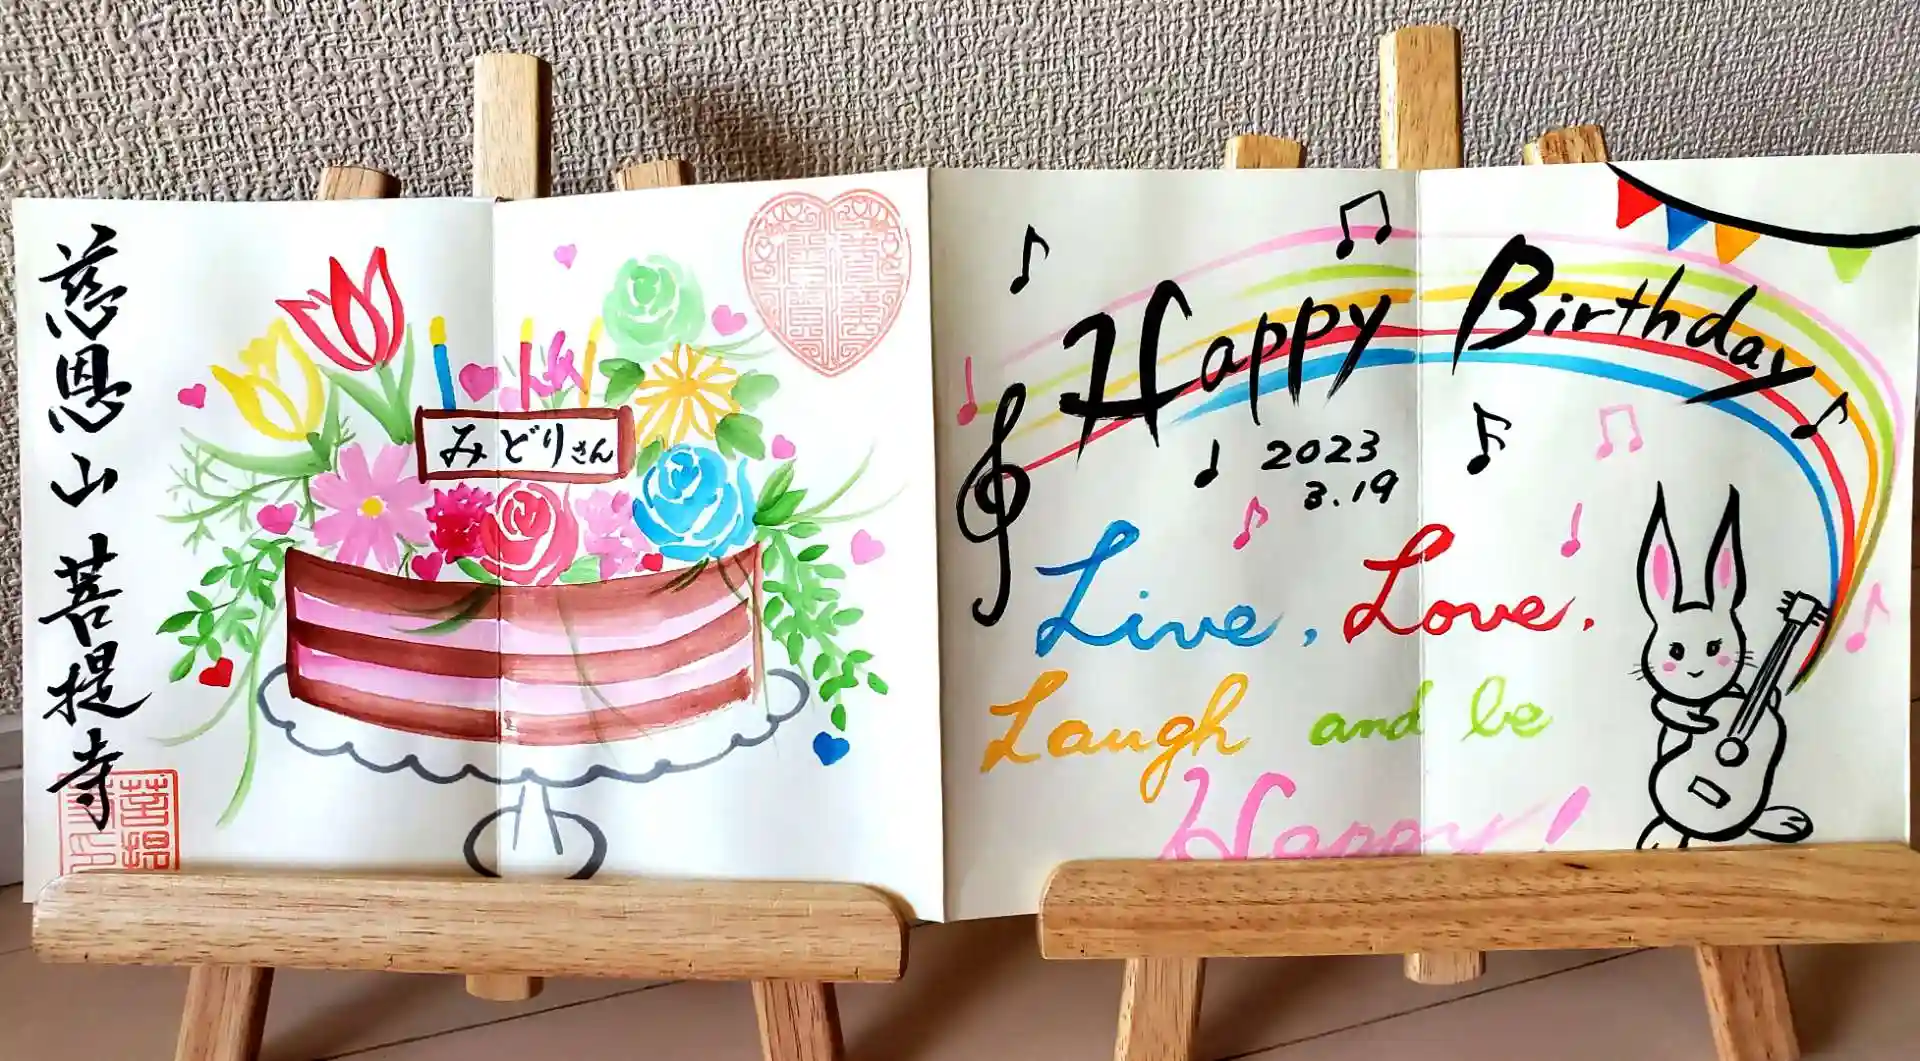 慈恩山 菩提寺
みどりさん
Happy Birthday
2023
3.19
Live, Love,
Laugh and be
Happy!